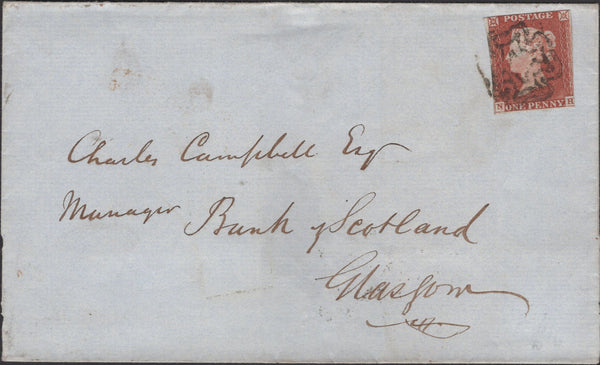 POSTAGE
N ONE PENNY H
Charles Campbell Esqr
Manager Bank of Scotland
Glasgow